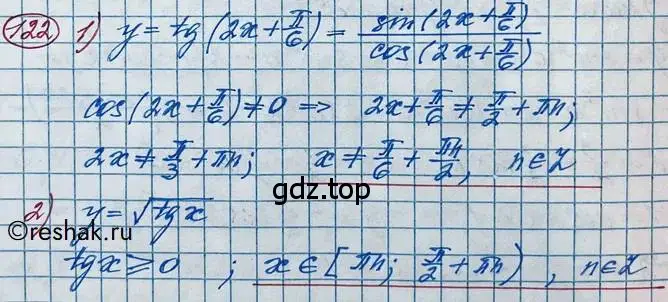 122 1) y = tg (2x + π/6) = sin(2x + π/6) / cos(2x + π/6)
cos(2x + π/6) ≠ 0 => 2x + π/6 ≠ π/2 + πn;
2x ≠ π/3 + πn; x ≠ π/6 + πn/2, n ∈ Z
gdz.top
2) y = √tg x
©reshak.ru
tg x ⩾ 0 ; x ∈ [πn; π/2 + πn) , n ∈ Z